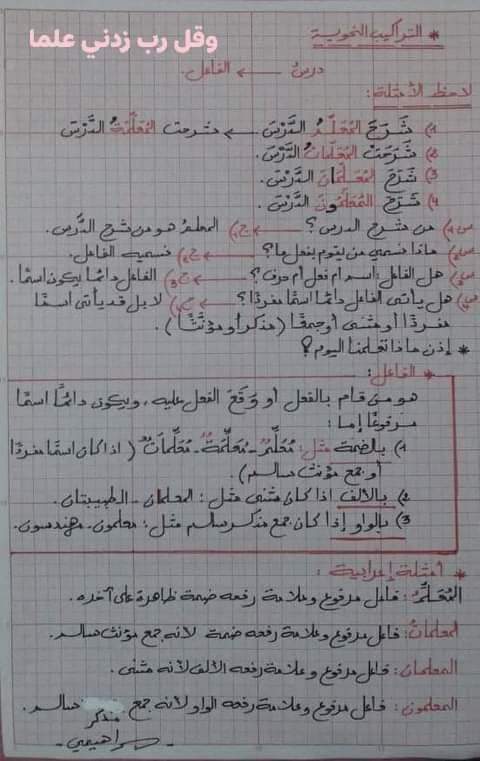 وقل رب زدني علما
* التراكيب النحوية
درس ← الفاعل.
لاحظ الأمثلة:
1) شَرَحَ المُعَلِّمُ الدَّرْسَ ← شرحت المُعَلِّمَةُ الدَّرْسَ
2) شَرَحَتْ المُعَلِّمَاتُ الدَّرْسَ.
3) شَرَحَ المُعَلِّمَانِ الدَّرْسَ.
4) شَرَحَ المُعَلِّمُونَ الدَّرْسَ.
س1) من شرح الدرس؟ ← ج1) المعلم هو من شرح الدرس.
س2) ماذا نسمي من يقوم بفعل ما؟ ← ج2) نسميه الفاعل.
س3) هل الفاعل: اسم أم فعل أم حرف؟ ← ج3) الفاعل دائما يكون اسمًا.
س4) هل يأتي الفاعل دائمًا اسمًا مفردًا؟ ← ج4) لا بل قد يأتي اسمًا
مفردًا أو مثنى أو جمعًا (مذكر أو مؤنثًا).
* إذن ماذا تعلمنا اليوم؟
* الفاعل:
هو من قام بالفعل أو وَقَعَ الفعل عليه، ويكون دائمًا اسمًا
مرفوعًا إما:
1) بالضمة مثل: مُعَلِّمٌ - مُعَلِّمَةٌ - مُعَلِّمَاتٌ (اذا كان اسمًا مفردًا
أو جمع مؤنث سالم).
2) بالألف اذا كان مثنى مثل: المعلمان - الطبيبتان.
3) بالواو إذا كان جمع مذكر سالم مثل: معلمون - مهندسون.
* أمثلة إعرابية:
المُعَلِّمُ: فاعل مرفوع وعلامة رفعه ضمة ظاهرة على آخره.
المعلماتُ: فاعل مرفوع وعلامة رفعه ضمة لأنه جمع مؤنث سالم.
المعلمان: فاعل مرفوع وعلامة رفعه الألف لأنه مثنى.
المعلمون: فاعل مرفوع وعلامة رفعه الواو لأنه جمع سالم.
مذكر